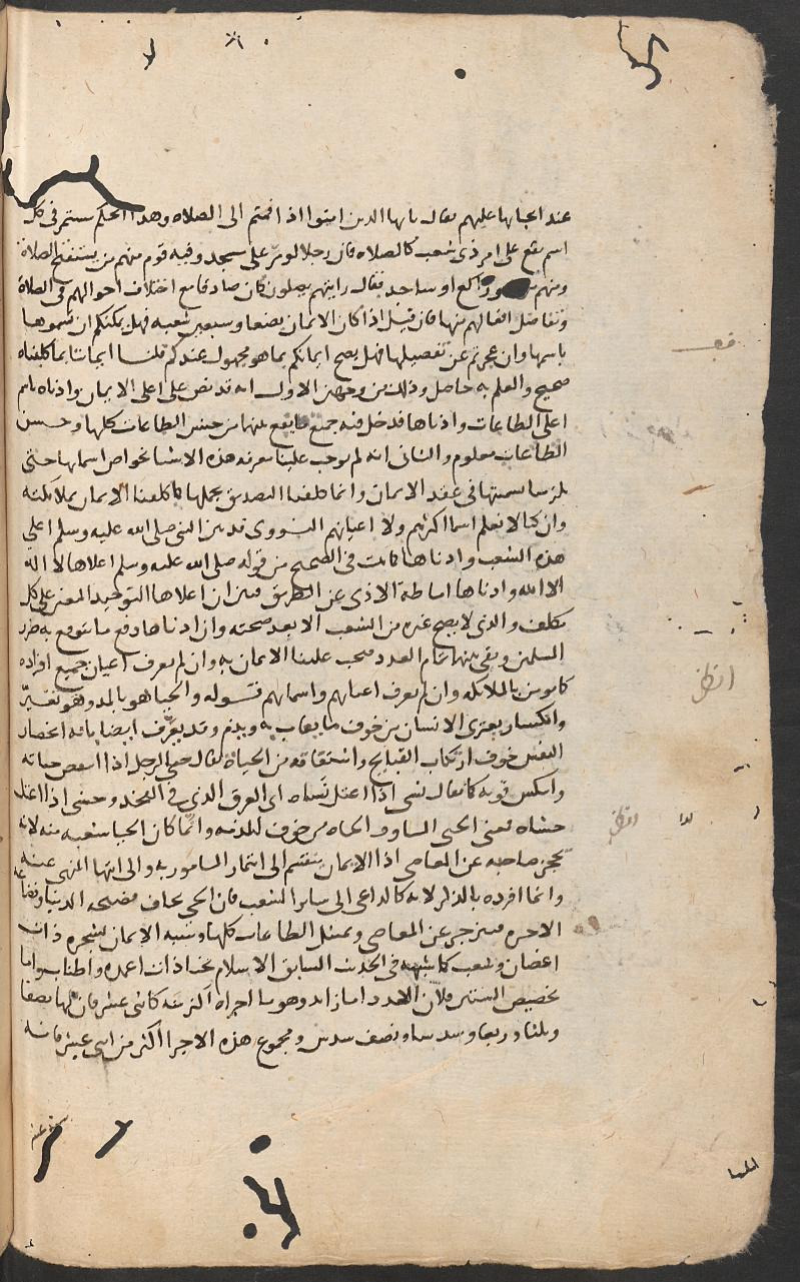 عند ايجابها عليهم فقال يايها الذين امنوا اذا قمتم الى الصلاه وهذا الحكم مستمر فى كل
اسم يقع على امر ذى شعب كالصلاه فان رجلا لو مر على مسجد وفيه قوم منهم من يستفتح الصلاة
ومنهم راكع او ساجد فقال رايتهم يصلون كان صادقا مع اختلاف احوالهم فى الصلاة
وتفاضل افعالهم منها فان قيل اذا كان الايمان بضعا وسبعين شعبه فهل يمكنكم ان تسموها
باسمها وان عجزتم عن تفصيلها فهل يصح ايمانكم بما هو مجهول عندكم قلنا ايماننا بما كلفناه
صحيح والعلم به حاصل وذلك من وجهين الاول انه قد نص على اعلى الايمان وادناه باسم
اعلى الطاعات وادناها فدخل فيه جميع ما يقع بينهما من جنس الطاعات كلها وجنس
الطاعات معلوم والثانى انه لم يوجب علينا معرفه هذه الاشيا بخواص اسمايها حتى
يلزمنا تسميتها فى عقد الايمان وانما كلفنا التصديق بجملتها كما كلفنا الايمان بملايكته
وان كنا لا نعلم اسما اكثرهم ولا اعيانهم النووى قد بين النبى صلى الله عليه وسلم اعلى
هذه الشعب وادناها كما ثبت فى الصحيح من قوله صلى الله عليه وسلم اعلاها لا اله
الا الله وادناها اماطة الاذى عن الطريق فبين ان اعلاها التوحيد المتعين على كل
مكلف والذى لا يصح غيره من الشعب الا بعد صحته وان ادناها دفع ما يتوقع به ضرر
المسلمين وبقى بينهما تمام العدد فيجب علينا الايمان به وان لم يعرف اعيان جميع افراده
كما نومن بالملايكه وان لم يعرف اعيانهم واسمايهم قوله والحيا هو بالمد وهو تغير
وانكسار يعترى الانسان من خوف ما يعاب به ويذم وقد يعرف ايضا بانه انحصار
النفس خوف ارتكاب القبايح واشتقاقه من الحياة يقال حيى الرجل اذا انتقص حياته
وانتكس قوته كما يقال نسى اذا اعتل نساه اى العرق الذى فى الفخذ وحشى اذا اعتل
حشاه فمعنى الحيى الماوف الحياه من خوف المذمه وانما كان الحيا شعبه منه لانه
يحجز صاحبه عن المعاصى اذ الايمان ينقسم الى ايتمار المامور به والى انتها المنهى عنه
وانما افرده بالذكر لانه كالداعى الى ساير الشعب فان الحيى يخاف فضيحه الدنيا وفظاعه
الاخره فينزجر عن المعاصى ويمتثل الطاعات كلها وشبه الايمان بشجره ذات
اغصان وشعب كما شبه فى الحديث السابق الاسلام بخبا ذات اعمده واطناب واما
تخصيص الستين فلان العدد اما زايد وهو ما اجزاه اكثر منه كاثنى عشر فان لها نصفا
وثلثا وربعا وسدسا ونصف سدس ومجموع هذه الاجزا اكثر من اثنى عشر فانه